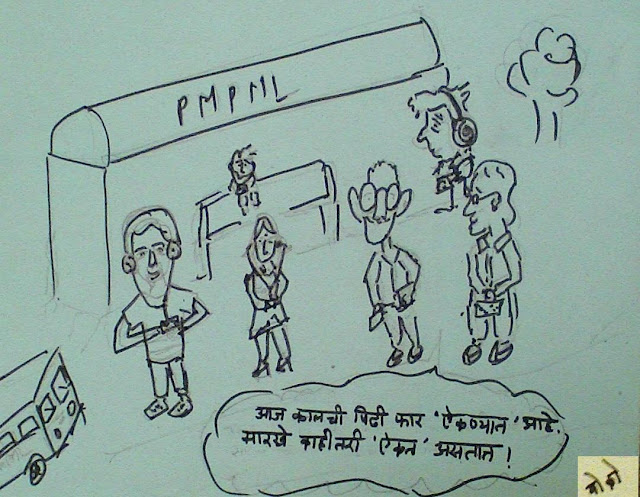 PMPML
आज कालची पिढी फार 'ऐकण्यात' आहे.
सारखे काहीतरी 'ऐकत' असतात!